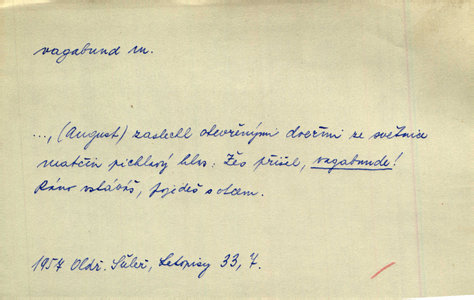 vagabund m.
..., (August) zaslechl otevřenými dveřmi ze světnice
matčin pichlavý hlas: Žes přišel, vagabunde!
Ráno vstáváš, pojedeš s otcem.
1957 Oldř. Šuleř, Letopisy 33, 7.